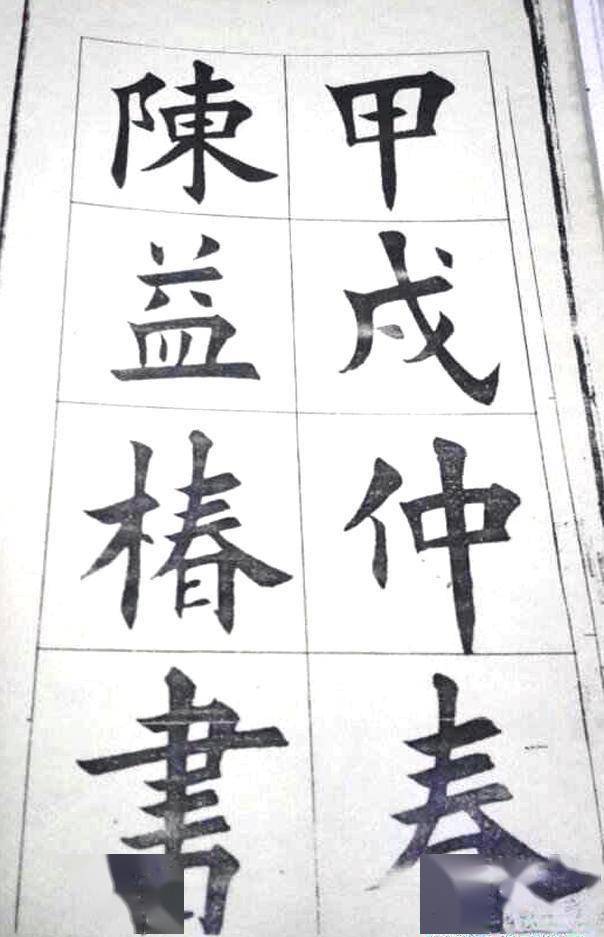 甲戌仲春
陳益椿書